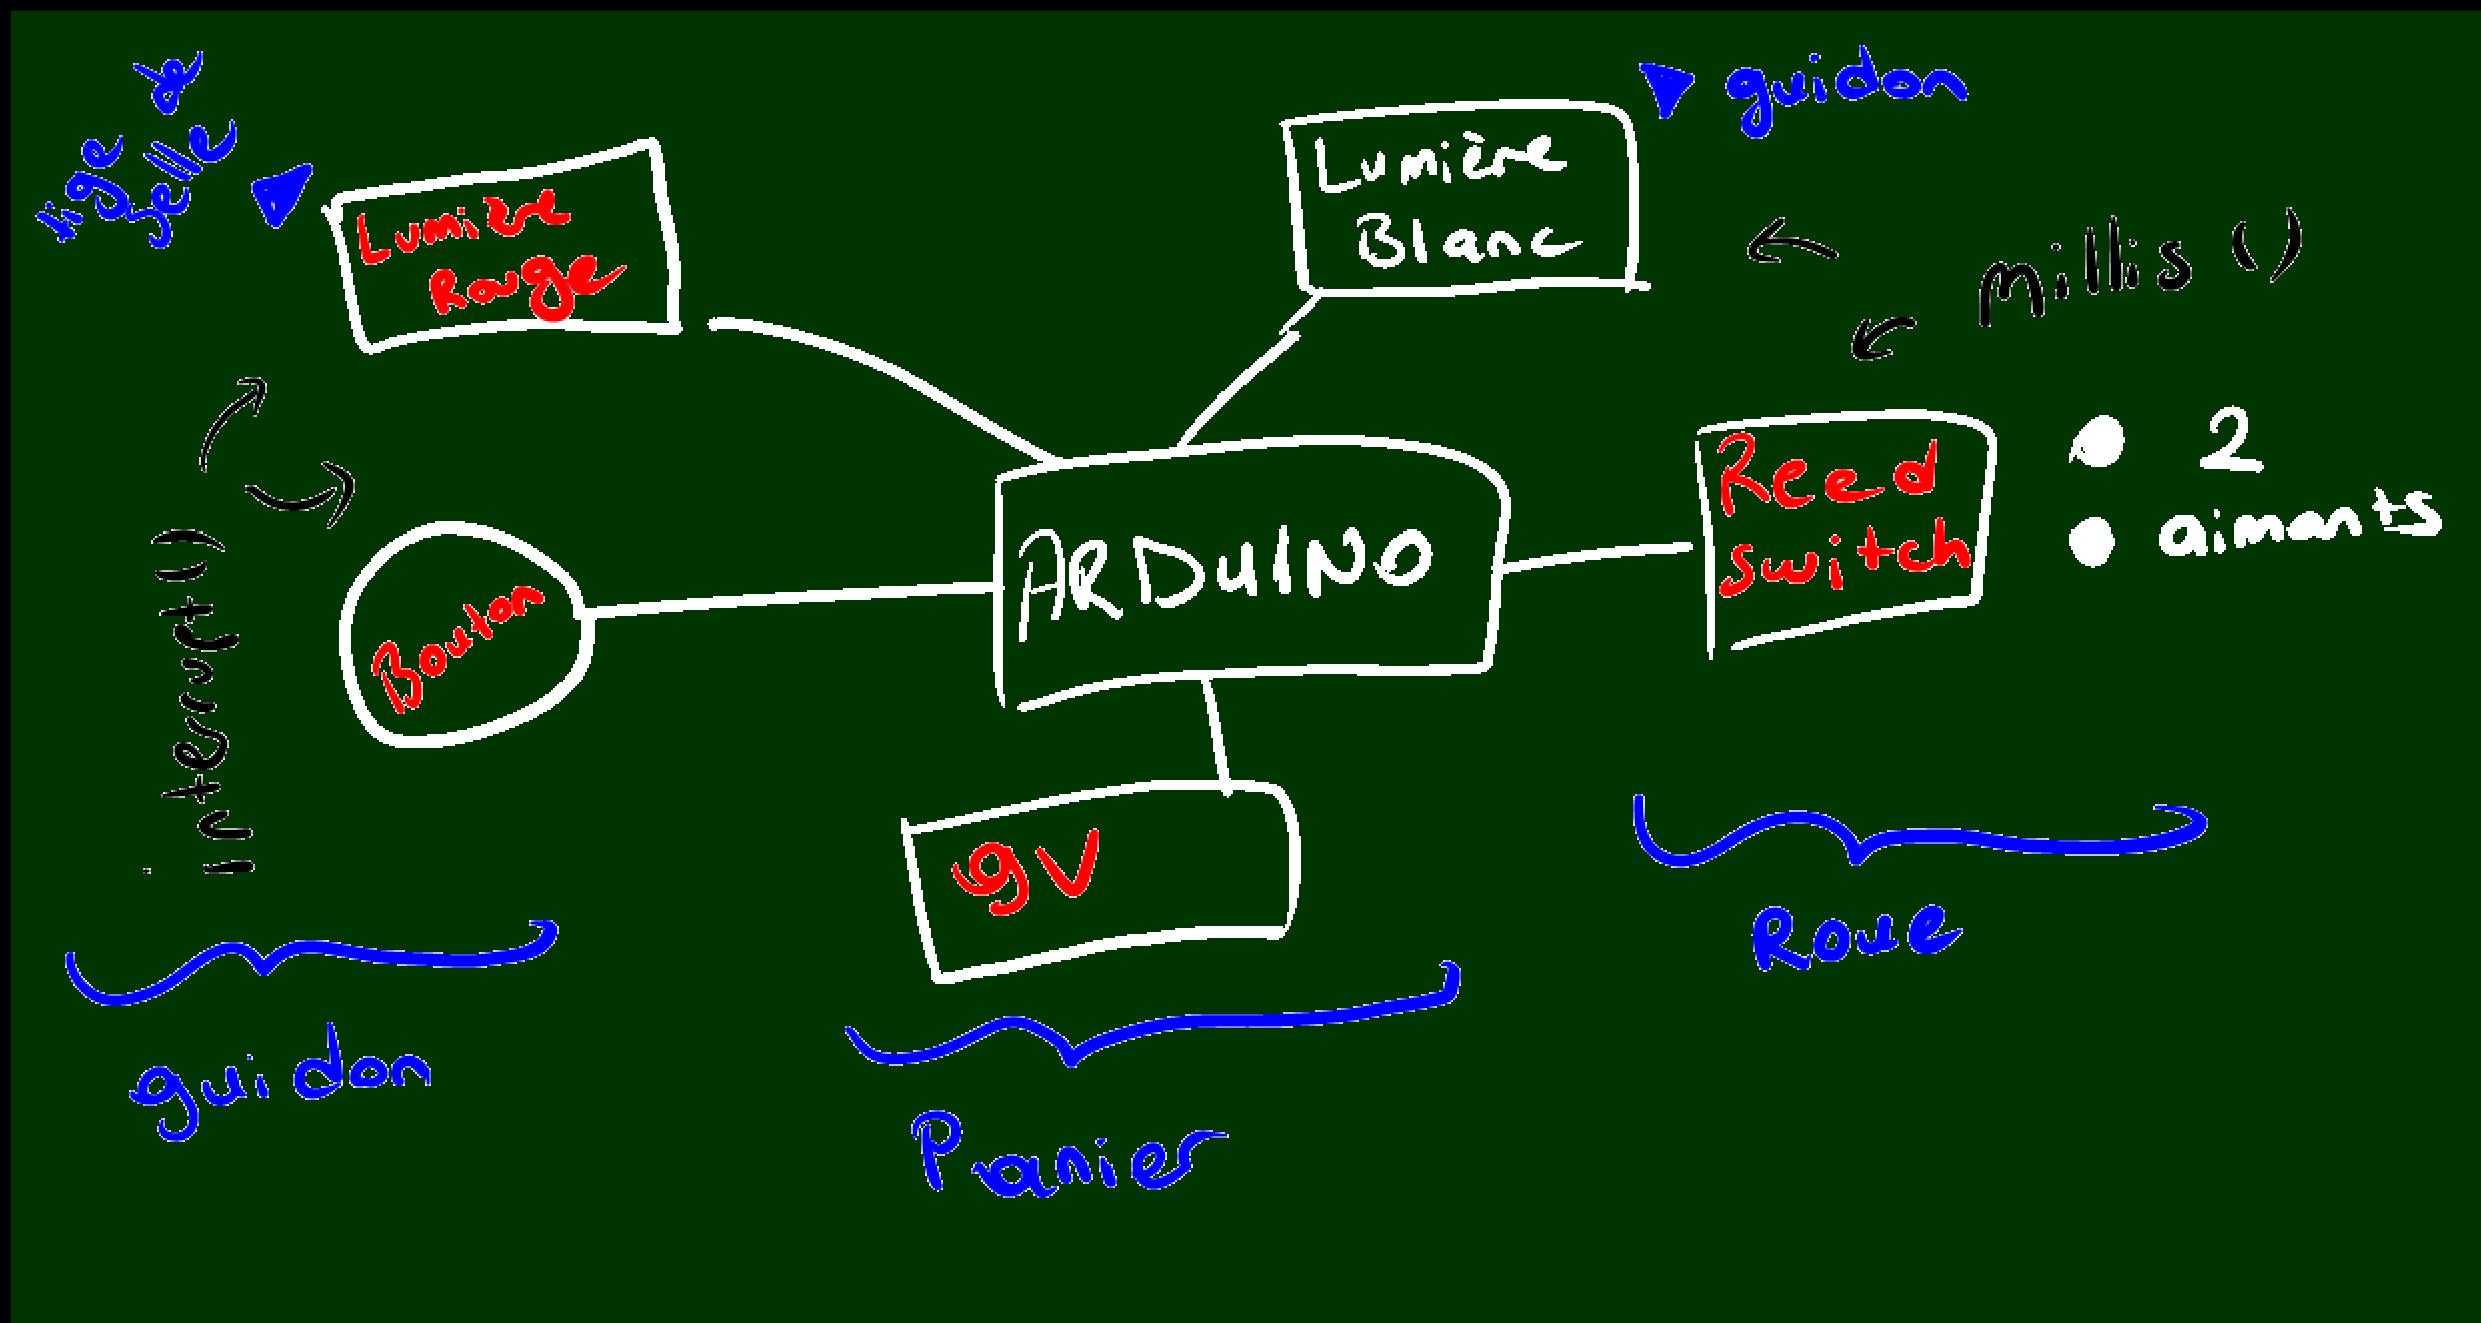 tige de
selle
Lumière
Rouge
Lumière
Blanc
guidon
millis ()
interrupt()
Bouton
ARDUINO
Reed
switch
2
aimants
9V
guidon
Panier
Roue